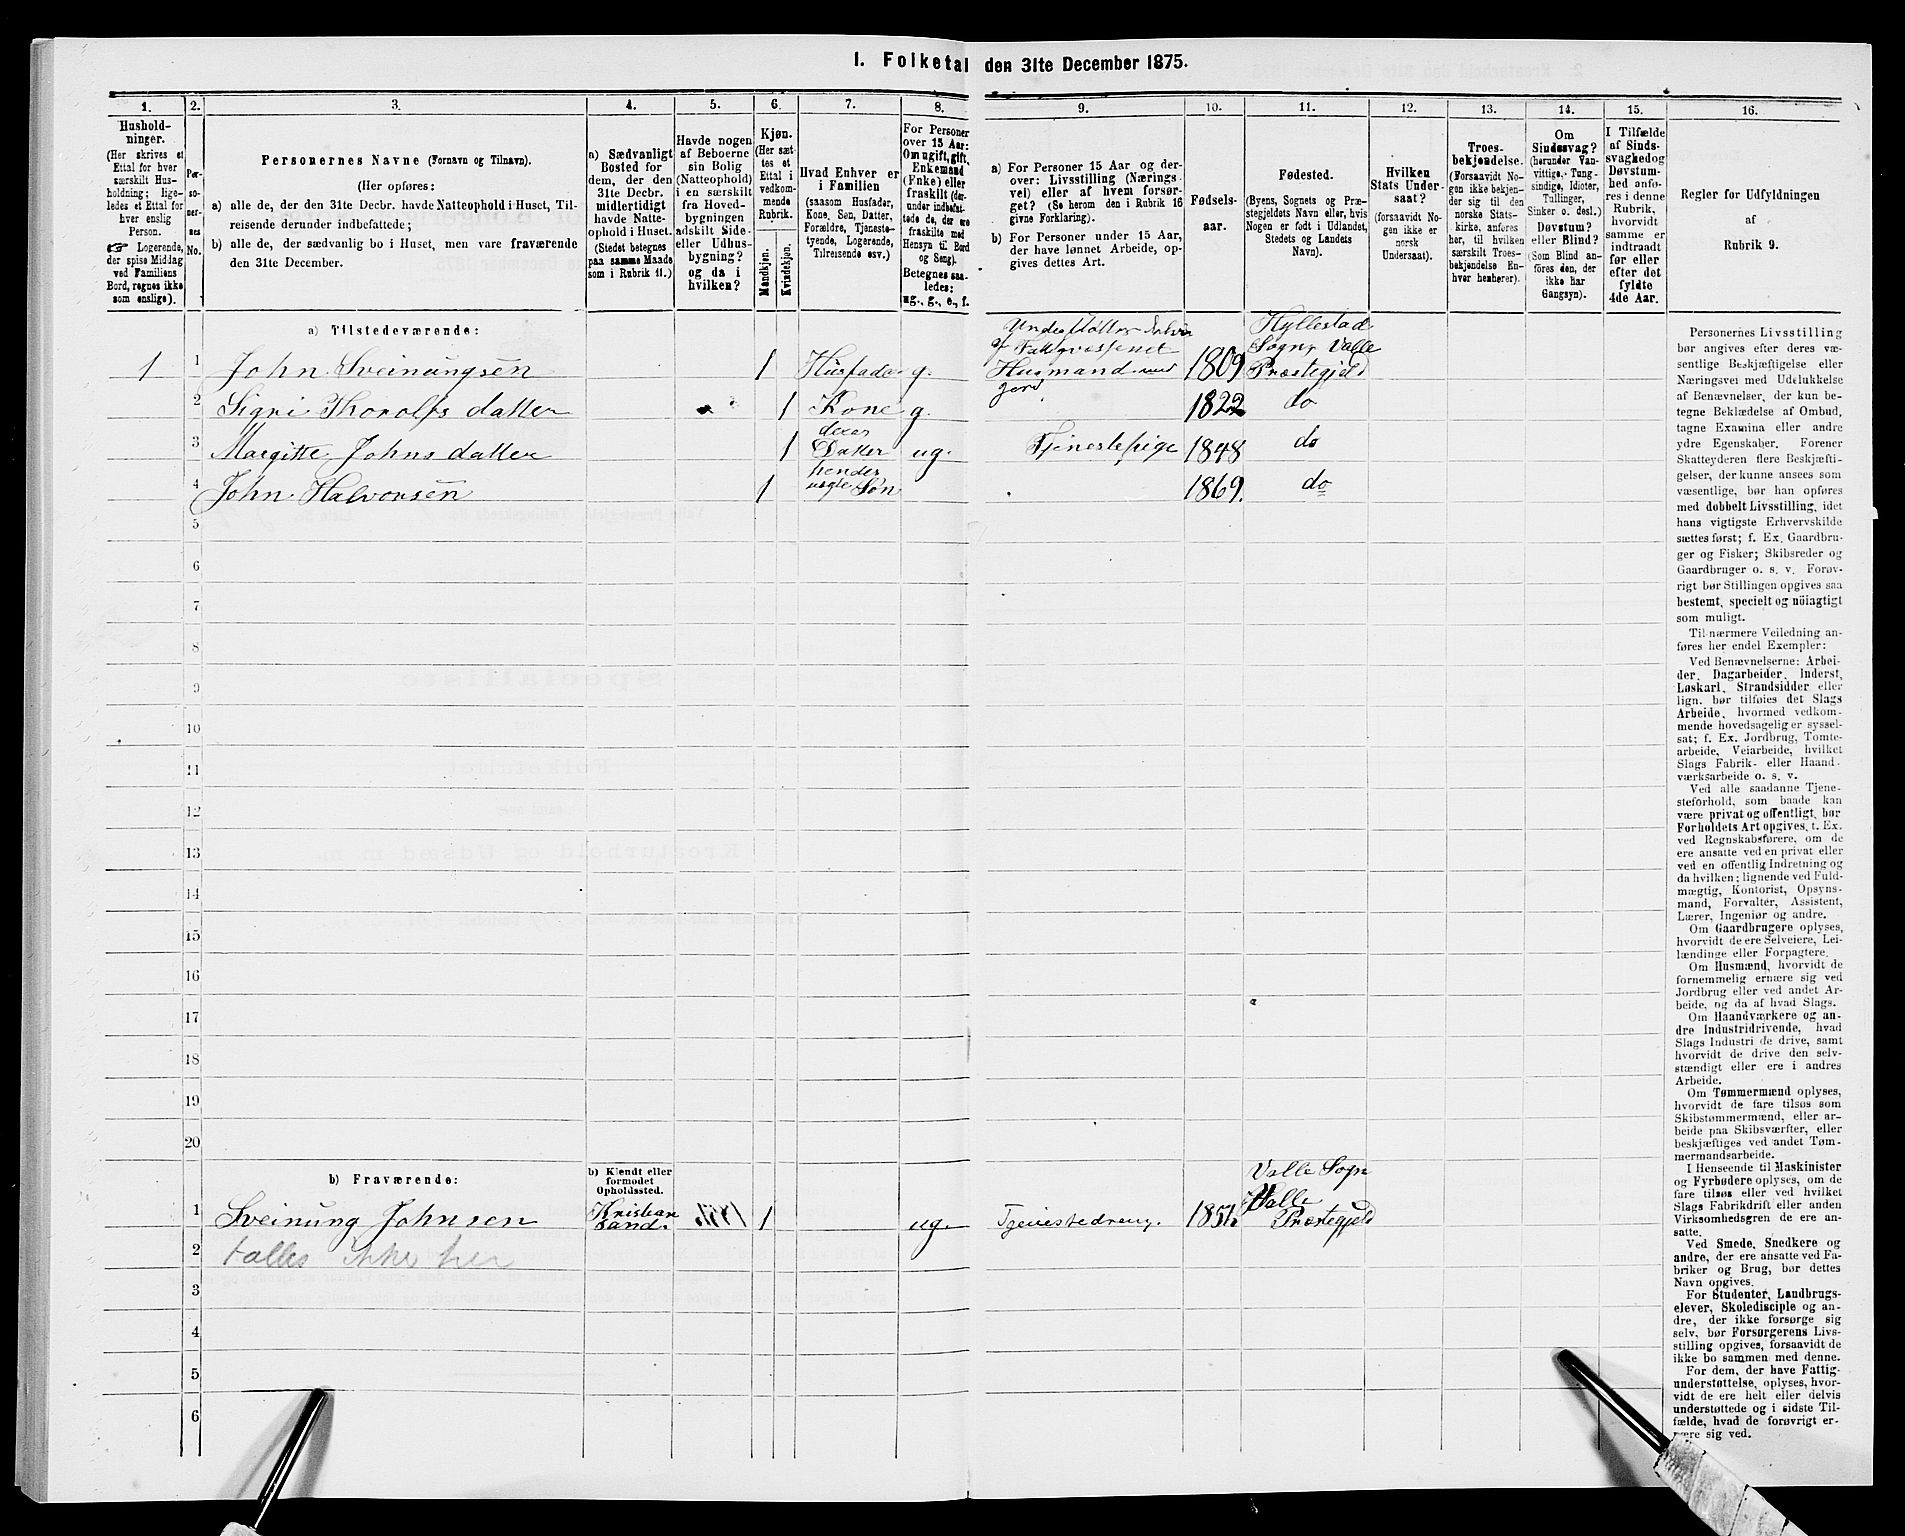 I. Folketal den 31te December 1875.
1.
2.
3.
4.
5.
6.
7.
8.
9.
10.
11.
12.
13.
14.
15.
16.
Hushold-
ninger.
(Her skrives et
Ettal for hver
særskilt Hus-
holdning; lige-
ledes et Ettal for
hver enslig
Person.
☞ Logerende,
der spise Middag
ved Familiens
Bord, regnes ikke
som enslige).
Per-
so-
ner-
nes
No.
Personernes Navne (Fornavn og Tilnavn).
(Her opføres:
a) alle de, der den 31te Decbr. havde Natteophold i Huset, Til-
reisende derunder indbefattede;
b) alle de, der sædvanlig bo i Huset, men vare fraværende
den 31te December.
a) Sædvanligt
Bosted for
dem, der den
31te Decbr.
midlertidigt
havde Natte-
ophold i Huset.
(Stedet betegnes
paa samme Maade
som i Rubrik 11.)
Havde nogen
af Beboerne
sin Bolig
(Natteophold)
i en særskilt
fra Hoved-
bygningen
adskilt Side-
eller Udhus-
bygning?
og da i
hvilken?
Kjøn.
(Her sæt-
tes et
Ettal i
vedkom-
mende
Rubrik.
Mandkjøn.
Kvindekjøn.
Hvad Enhver er
i Familien
(saasom Husfader,
Kone, Søn, Datter,
Forældre, Tjeneste-
tyende, Logerende,
Tilreisende osv.)
For Personer
over 15 Aar:
Om ugift, gift,
Enkemand
(Enke) eller
fraskilt (der-
under indbefat-
tede de, der ere
fraskilte med
Hensyn til Bord
og Seng).
Betegnes saa-
ledes:
ug., g., e., f.
a) For Personer 15 Aar og der-
over: Livsstilling (Nærings-
vei) eller af hvem forsør-
get? (Se herom den i Rubrik 16
givne Forklaring).
b) For Personer under 15 Aar,
der have lønnet Arbeide, op-
gives dettes Art.
Fødsels-
aar.
Fødested.
(Byens, Sognets og Præ-
stegjeldets Navn eller, hvis
Nogen er født i Udlandet,
Stedets og Landets
Navn).
Hvilken
Stats Under-
saat?
(forsaavidt No-
gen ikke er
norsk
Undersaat).
Troes-
bekjendelse.
(Forsaavidt No-
gen ikke bekjen-
der sig til den
norske Stats-
kirke, anføres
her, til hvilken
særskilt Troes-
bekjendelse En-
hver henhører).
Om
Sindssvag?
(herunder Van-
vittige, Tung-
sindige, Idioter,
Tullinger,
Sinker o. desl.)
Døvstum?
eller Blind?
(Som Blind an-
føres den, der
ikke har
Gangsyn).
I Tilfælde
af Sinds-
svaghed og
Døvstum-
hed anfø-
res i denne
Rubrik,
hvorvidt
samme er
indtraadt
før eller
efter det
fyldte
4de Aar.
Regler for Udfyldningen
af
Rubrik 9.
a) Tilstedeværende:
1 1 John Sveinungsen 1 Husfader g. Understøttes delvis af Fattigvæsenet Husmand med Jord 1809 Hyllestad Sogn, Valle Præstegjeld
2 Signi Thorolfsdatter 1 Kone g. 1822 do
3 Margitte Johnsdatter 1 deres Datter ug. Tjenestepige 1848 do
4 John Halvorsen 1 hendes uægte Søn 1869. do
5
6
7
8
9
10
11
12
13
14
15
16
17
18
19
20
b) Fraværende:
b) Kjendt eller
formodet
Opholdssted.
1 Sveinung Johnsen Kristian sand. 1 ug. Tjenestedreng. 1851 Valle Sogn Valle Præstegjeld
2 talles ikke her
3
4
5
6
Personernes Livsstilling
bør angives efter deres væ-
sentlige Beskjæftigelse eller
Næringsvei med Udelukkelse
af Benævnelser, der kun be-
tegne Beklædelse af Ombud,
tagne Examina eller andre
ydre Egenskaber. Forener
Skatteyderen flere Beskjæfti-
gelser, der kunne ansees som
væsentlige, bør han opføres
med dobbelt Livsstilling, idet
hans vigtigste Erhvervskilde
sættes først; f. Ex. Gaardbru-
ger og Fisker; Skibsreder og
Gaardbruger o. s. v. Forøv-
rigt bør Stillingen opgives saa
bestemt, specielt og nöiagtigt
som muligt.
Til nærmere Veiledning an-
føres her endel Exempler:
Ved Benævnelserne: Arbei-
der, Dagarbeider, Inderst,
Løskarl, Strandsidder eller
lign. bør tilføies det Slags
Arbeide, hvormed vedkom-
mende hovedsagelig er syssel-
sat; f. Ex. Jordbrug, Tomte-
arbeide, Veiarbeide, hvilket
Slags Fabrik- eller Haand-
værksarbeide o. s. v.
Ved alle saadanne Tjene-
steforhold, som baade kan
være privat og offentligt, bør
Forholdets Art opgives, t. Ex.
ved Regnskabsførere, om de
ere ansatte ved en privat eller
ved en offentlig Indretning og
da hvilken; lignende ved Fuld-
mægtig, Kontorist, Opsyns-
mand, Forvalter, Assistent,
Lærer, Ingeniør og andre.
Om Gaardbrugere oplyses,
hvorvidt de ere Selveiere, Lei-
lændinge eller Forpagtere.
Om Husmænd, hvorvidt de
fornemmelig ernære sig ved
Jordbrug eller ved andet Ar-
beide, og da af hvad Slags.
Om Haandværkere og an-
dre Industridrivende, hvad
Slags Industri de drive, samt
hvorvidt de drive den selv-
stændigt eller ere i andres
Arbeide.
Om Tømmermænd oplyses,
hvorvidt de fare tilsøs som
Skibstømmermænd, eller ar-
beide paa Skibsværfter, eller
beskjæftiges ved andet Tøm-
mermandsarbeide.
I Henseende til Maskinister
og Fyrbødere oplyses, om de
fare tilsøs eller ved hvilket
Slags Fabrikdrift eller anden
Virksomhedsgren de ere an-
satte.
Ved Smede, Snedkere og
andre, der ere ansatte ved Fa-
briker og Brug, bør dettes
Navn opgives.
For Studenter, Landbrugs-
elever, Skoledisciple og an-
dre, der ikke forsørge sig
selv, bør Forsørgerens Livs-
stilling opgives, forsaavidt de
ikke bo sammen med denne.
For dem, der have Fattig-
understøttelse, oplyses, hvor-
vidt de ere helt eller delvis
understøttede og i sidste Til-
fælde, hvad de forøvrigt er-
nære sig ved.